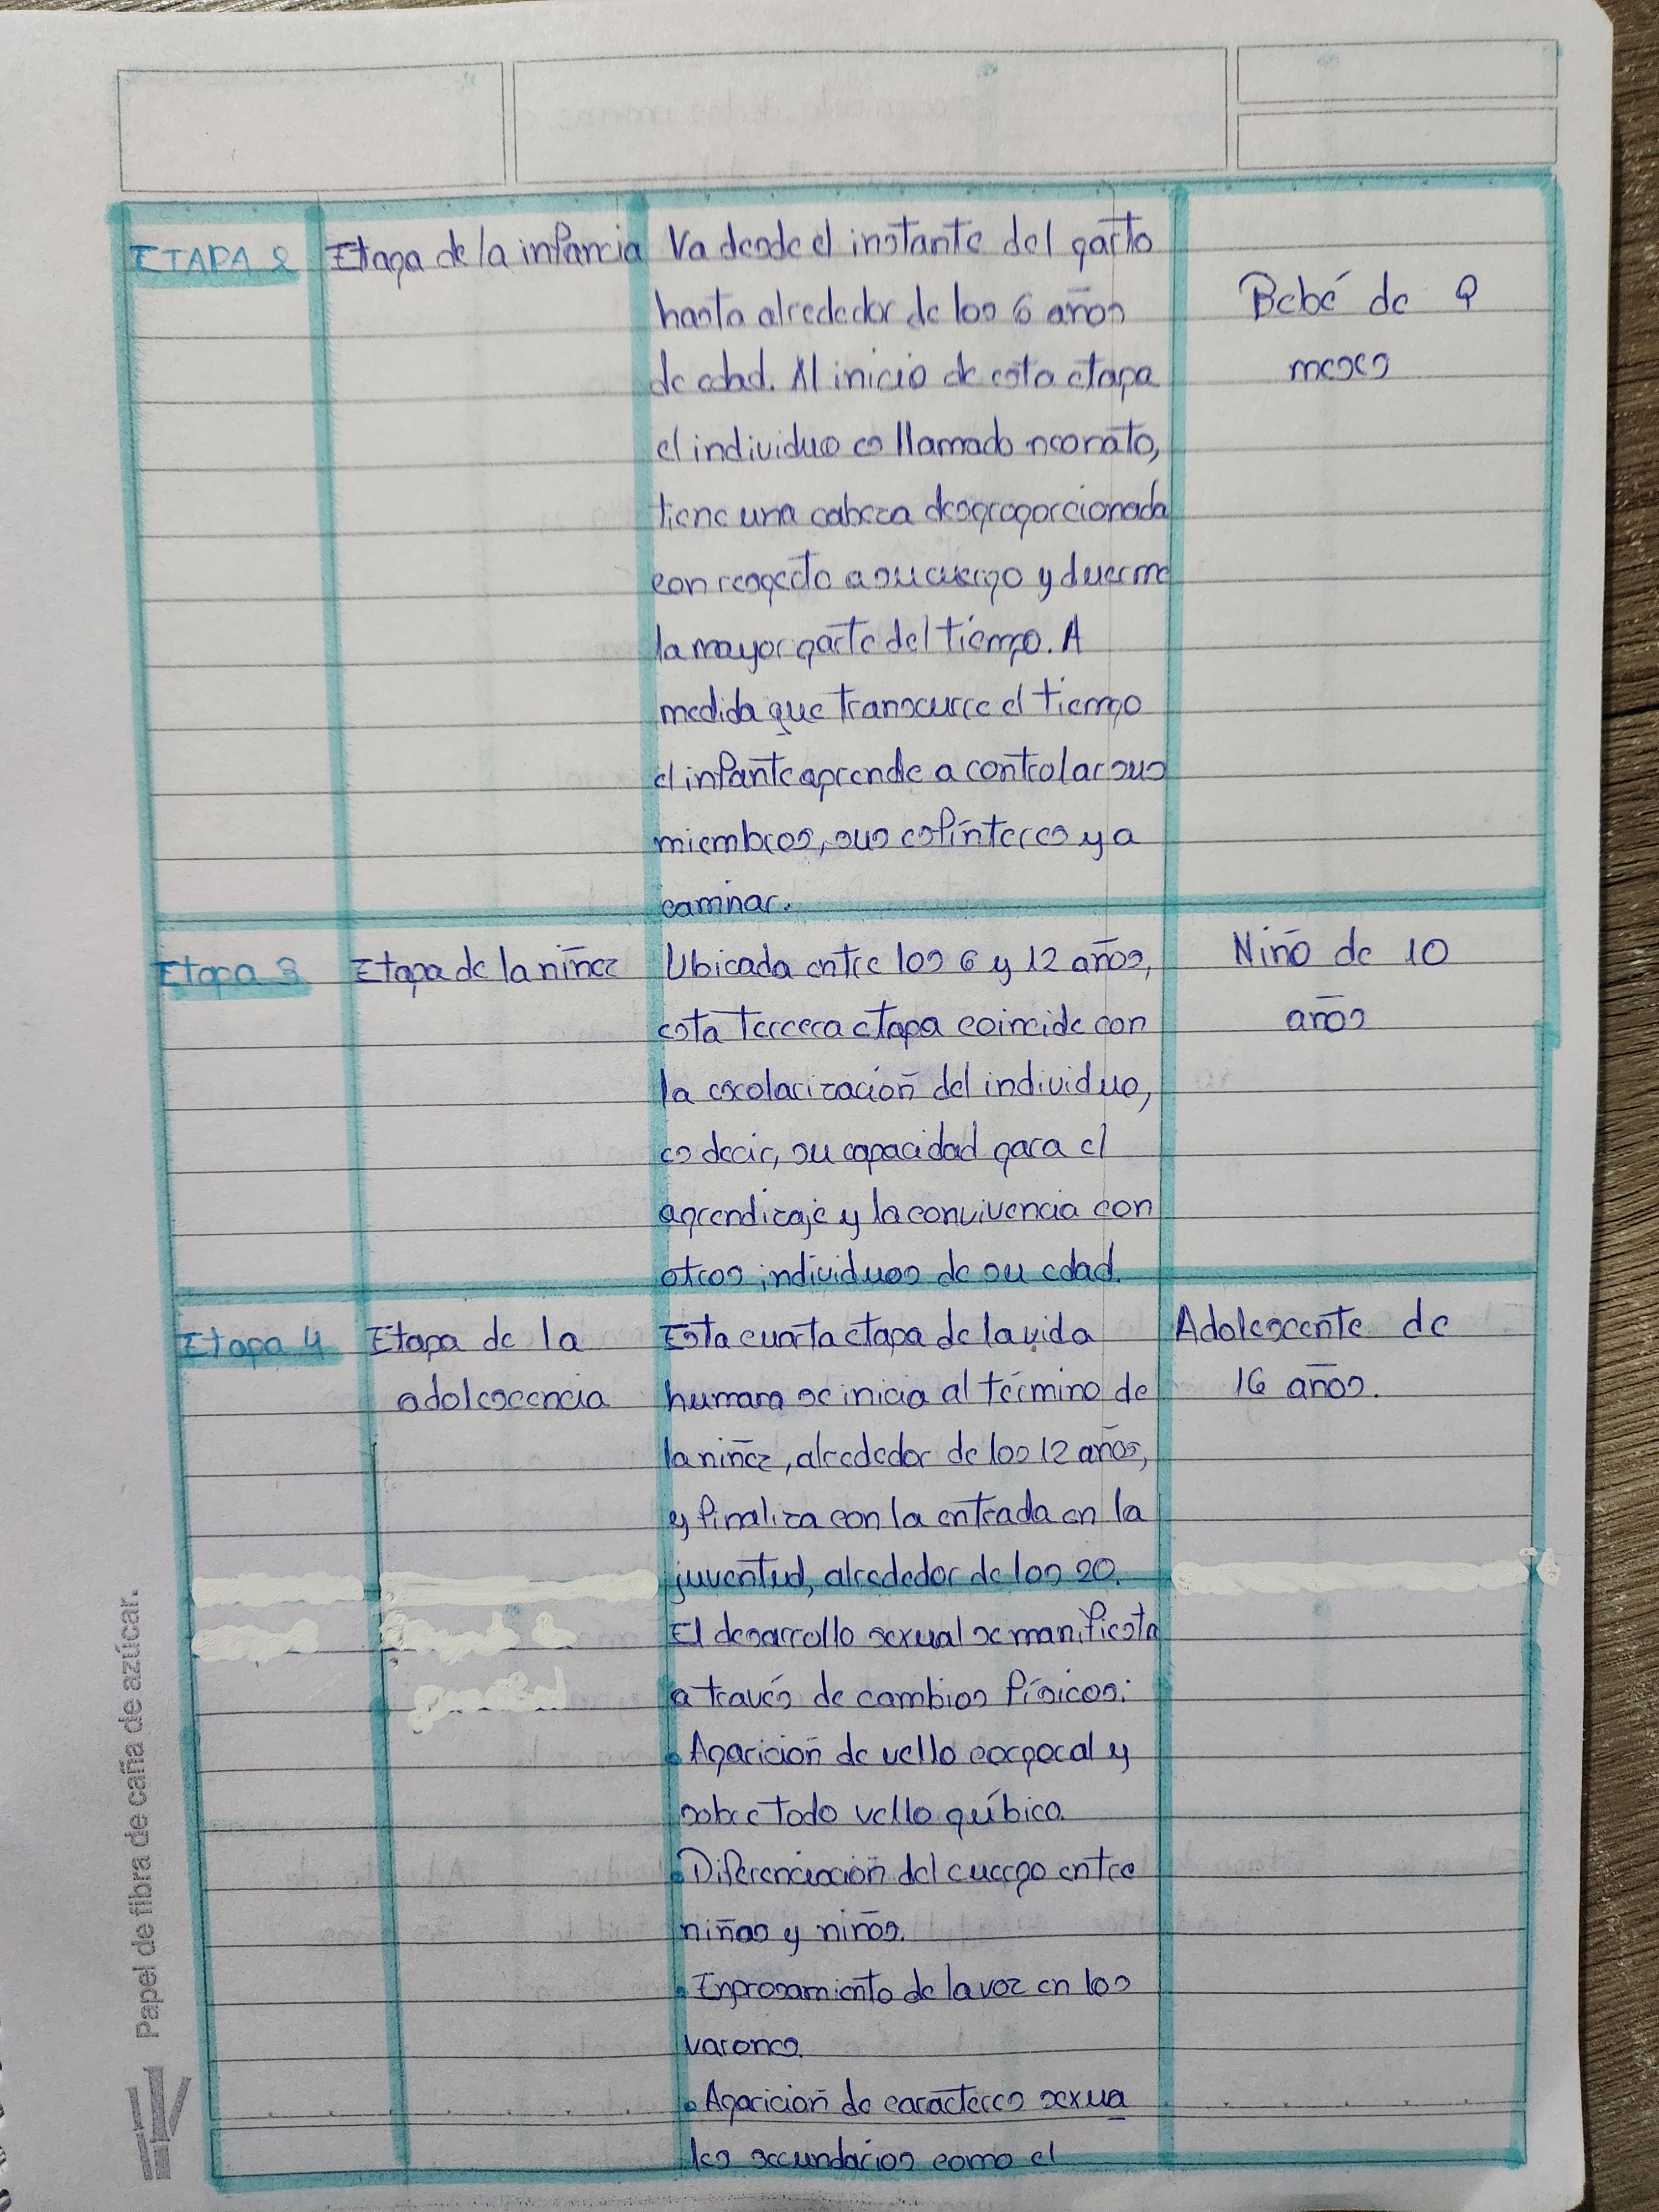 ETAPA 2
Etapa de la infancia
Va desde el instante del parto
hasta alrededor de los 6 años
de edad. Al inicio de esta etapa
el individuo es llamado neonato,
tiene una cabeza desproporcionada
con respecto a su cuerpo y duerme
la mayor parte del tiempo. A
medida que transcurre el tiempo
el infante aprende a controlar sus
miembros, sus esfínteres y a
caminar.
Bebé de 9
meses
Etapa 3
Etapa de la niñez
Ubicada entre los 6 y 12 años,
esta tercera etapa coincide con
la escolarización del individuo,
es decir, su capacidad para el
aprendizaje y la convivencia con
otros individuos de su edad.
Niño de 10
años
Etapa 4
Etapa de la
adolescencia
Esta cuarta etapa de la vida
humana se inicia al término de
la niñez, alrededor de los 12 años,
y finaliza con la entrada en la
juventud, alrededor de los 20.
El desarrollo sexual se manifiesta
a través de cambios físicos:
• Aparición de vello corporal y
sobre todo vello púbico.
• Diferenciación del cuerpo entre
niñas y niños.
• Engrosamiento de la voz en los
varones.
• Aparición de caracteres sexua
les secundarios como el
Adolescente de
16 años.
Papel de fibra de caña de azúcar.